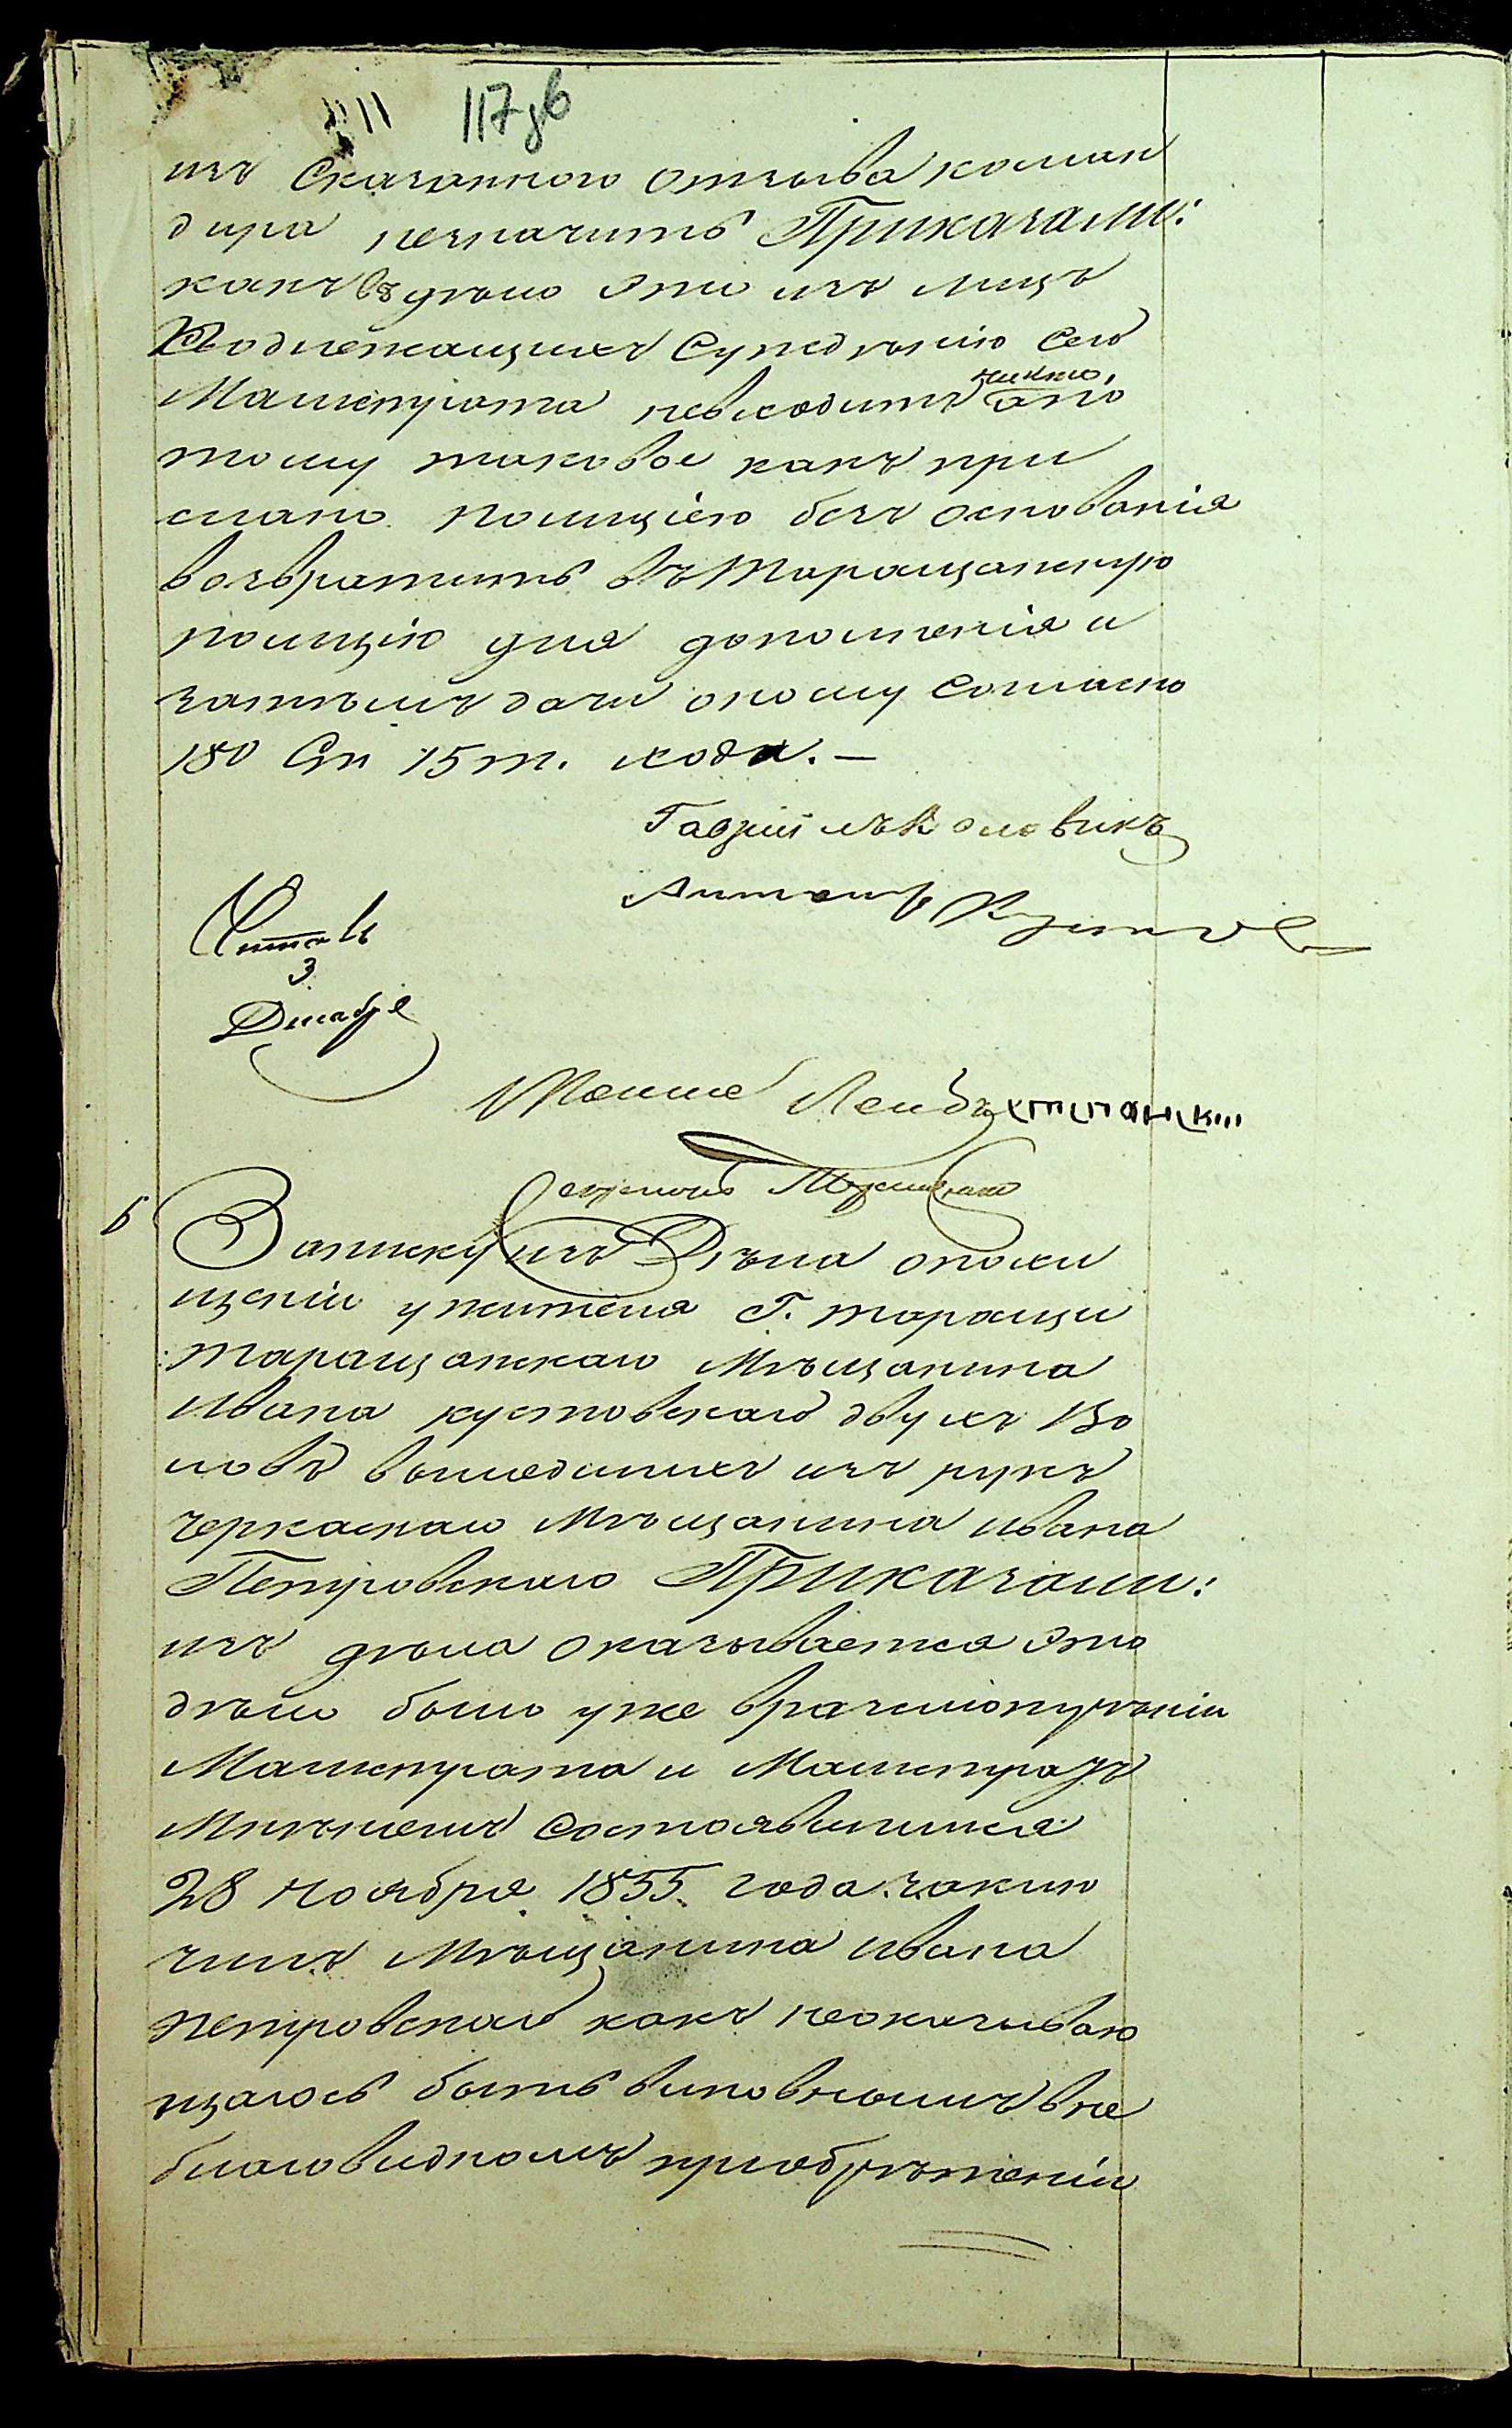 117 зв
изъ Сказанного отзыва коман
дира незначитъ Приказали:
какъ въ дѣло это изъ лицъ
подлежащихъ Сужденію Сего
Магистрата невходитъ никто, а по
тому таковое какъ при
слано полиціею безъ основанія
возвратить въ Таращанскую
полицію для дополненія и
затѣмъ дачи оному Согласно
180 Ст 15 т. хода. —
Гаврiилъ Коловикъ
Антонъ
Читалъ
3
Декабря
Мошке Лейбъ
Секретарь
6
Записку изъ Дѣла о похи
щеніи у жителя Г. Таращи
Таращанскаго Мѣщанина
Ивана кустовскаго двухъ Во
ловъ вышедшихъ изъ рукъ
черкаскаго Мѣщанина Ивана
Петровскаго Приказали:
изъ дѣла оказывается это
дѣло было уже вразсмотрѣніи
Магистрата и Магистратъ
Мнѣніемъ Состоявшимся
28 Ноября 1855 года заклю
чилъ Мѣщанина Ивана
Петровскаго какъ неоказываю
щагось быть виновнымъ вне
благовидномъ приобрѣтеніи